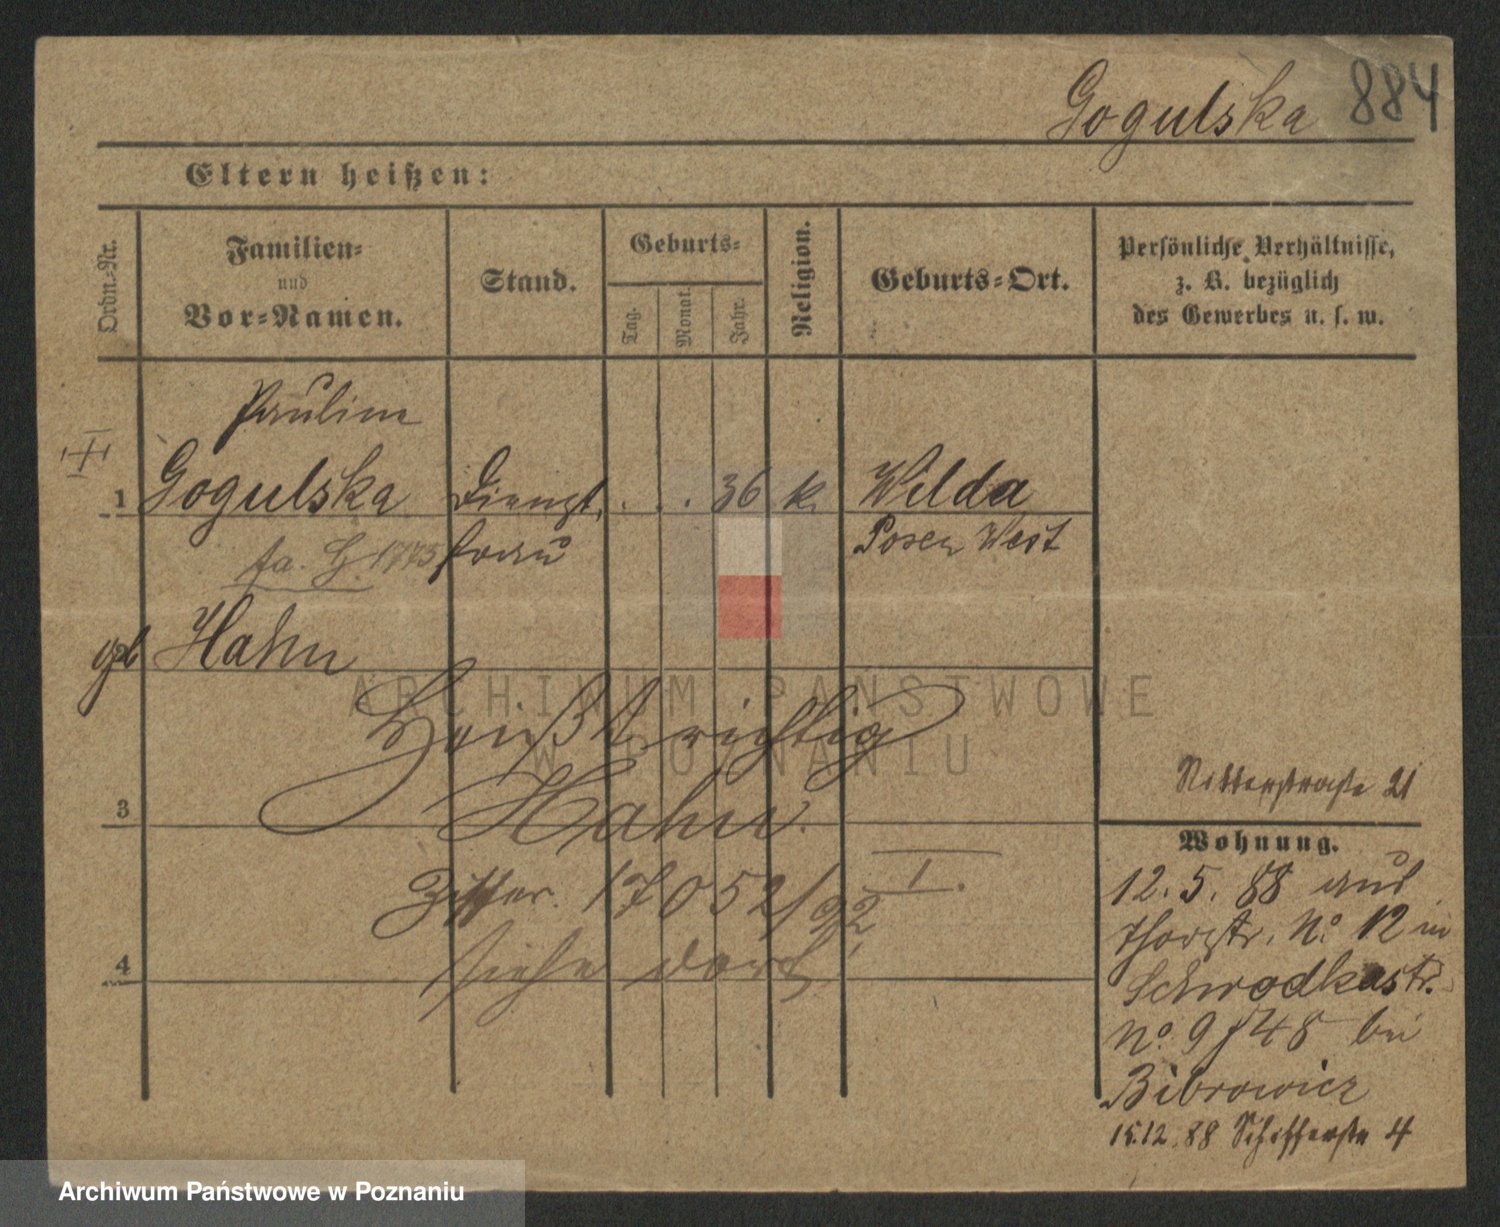 Gogulska 884
Eltern heißen:
Ordn.-Nr.
Familien-
und
Vor-Namen.
Stand.
Geburts-
Tag.
Monat.
Jahr.
Religion.
Geburts-Ort.
Persönliche Verhältnisse,
z. B. bezüglich
des Gewerbes u. s. w.
Pauline
1 Gogulska Dienst. . . 36 k. Wilda
frau Posen West
Hahn
ARCHIWUM PAŃSTWOWE
W POZNANIU
Heißt richtig
Hahn.
3
Ritterstraße 21
Wohnung.
Ziffer. 17052/92 I.
siehe dort!
4
12. 5. 88 aus
Thorstr. No. 12 in
Schrodkastr.
No. 9 / 48 bei
Bibrowicz
15.12.88 Schifferstr 4
Archiwum Państwowe w Poznaniu